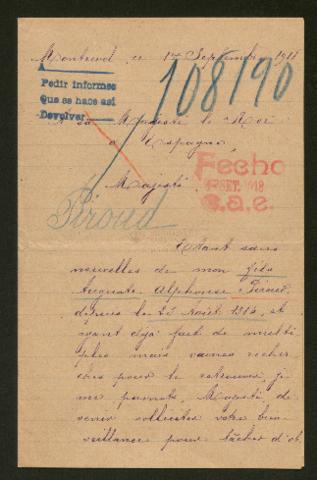 Montreuil, ce 1er Septembre 1918
Pedir informes
Que se hace así
Devolver
108190
A sa Majesté le Roi
d'Espagne,
Fecho
SET. 1918
C.a.e.
Majesté,
Piroud
Etant sans
nouvelles de mon fils
Auguste Alphonse Piroud
depuis le 23 Août 1914, et
ayant déjà fait de multi
ples mais vaines recher
ches pour le retrouver, je
me permets, Majesté, de
venir solliciter votre bien
veillance pour tâcher d'ob